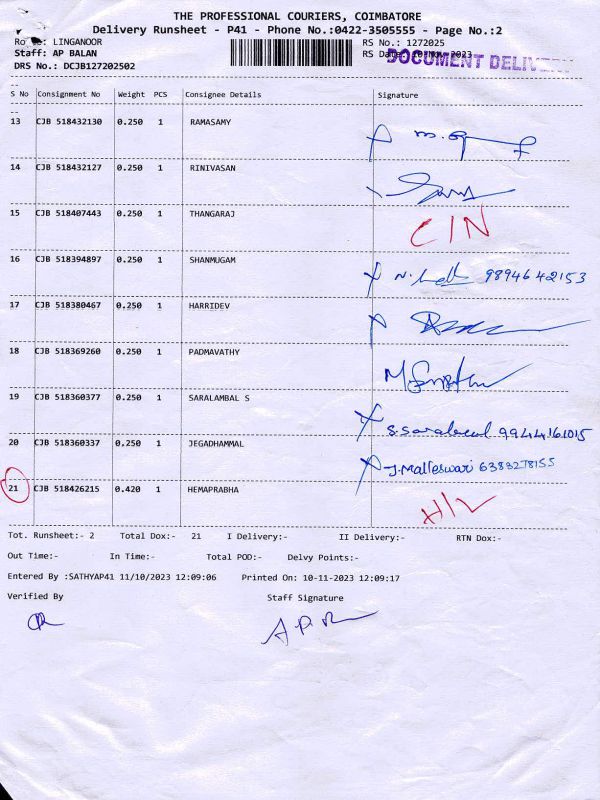 THE PROFESSIONAL COURIERS, COIMBATORE
Delivery Runsheet - P41 - Phone No.:0422-3505555 - Page No.:2
LINGANOOR RS No.: 1272025
Staff: AP BALAN RS Date: Nov 2023
DOCUMENT
DRS No.: DCJB127202502
S No Consignment No Weight PCS Consignee Details Signature
13 CJB 518432130 0.250 1 RAMASAMY
14 CJB 518432127 0.250 1 RINIVASAN
15 CJB 518407443 0.250 1 THANGARAJ C/N
16 CJB 518394897 0.250 1 SHANMUGAM 9894642153
17 CJB 518380467 0.250 1 HARRIDEV
18 CJB 518369260 0.250 1 PADMAVATHY
19 CJB 518360377 0.250 1 SARALAMBAL S 9944161015
20 CJB 518360337 0.250 1 JEGADHAMMAL J.Malleswari 6383278155
21 CJB 518426215 0.420 1 HEMAPRABHA
Tot. Runsheet:- 2 Total Dox:- 21 I Delivery:- II Delivery:- RTN Dox:-
Out Time:- In Time:- Total POD:- Delvy Points:-
Entered By :SATHYAP41 11/10/2023 12:09:06 Printed On: 10-11-2023 12:09:17
Verified By Staff Signature